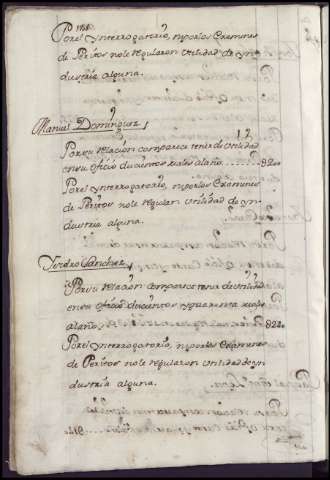 Por el Ynterrogatorio, ni por los Examenes
de Peritos no le regularon Utilidad de yn-
dustria alguna.
Manuel Dominguez
Por su relacion comparece tener de Utilidad
en su oficio ducientos reales al año
Por el Ynterrogatorio, ni por los Examenes
de Peritos no le regulan Utilidad de yn-
dustria alguna.
Ysidro Sanchez
Por su relacion comparece tener de utilidad
en su oficio ducientos y quarenta reales
al año
Por el Ynterrogatorio, ni por los Examenes
de Peritos no le regularon utilidad de yn-
dustria alguna.